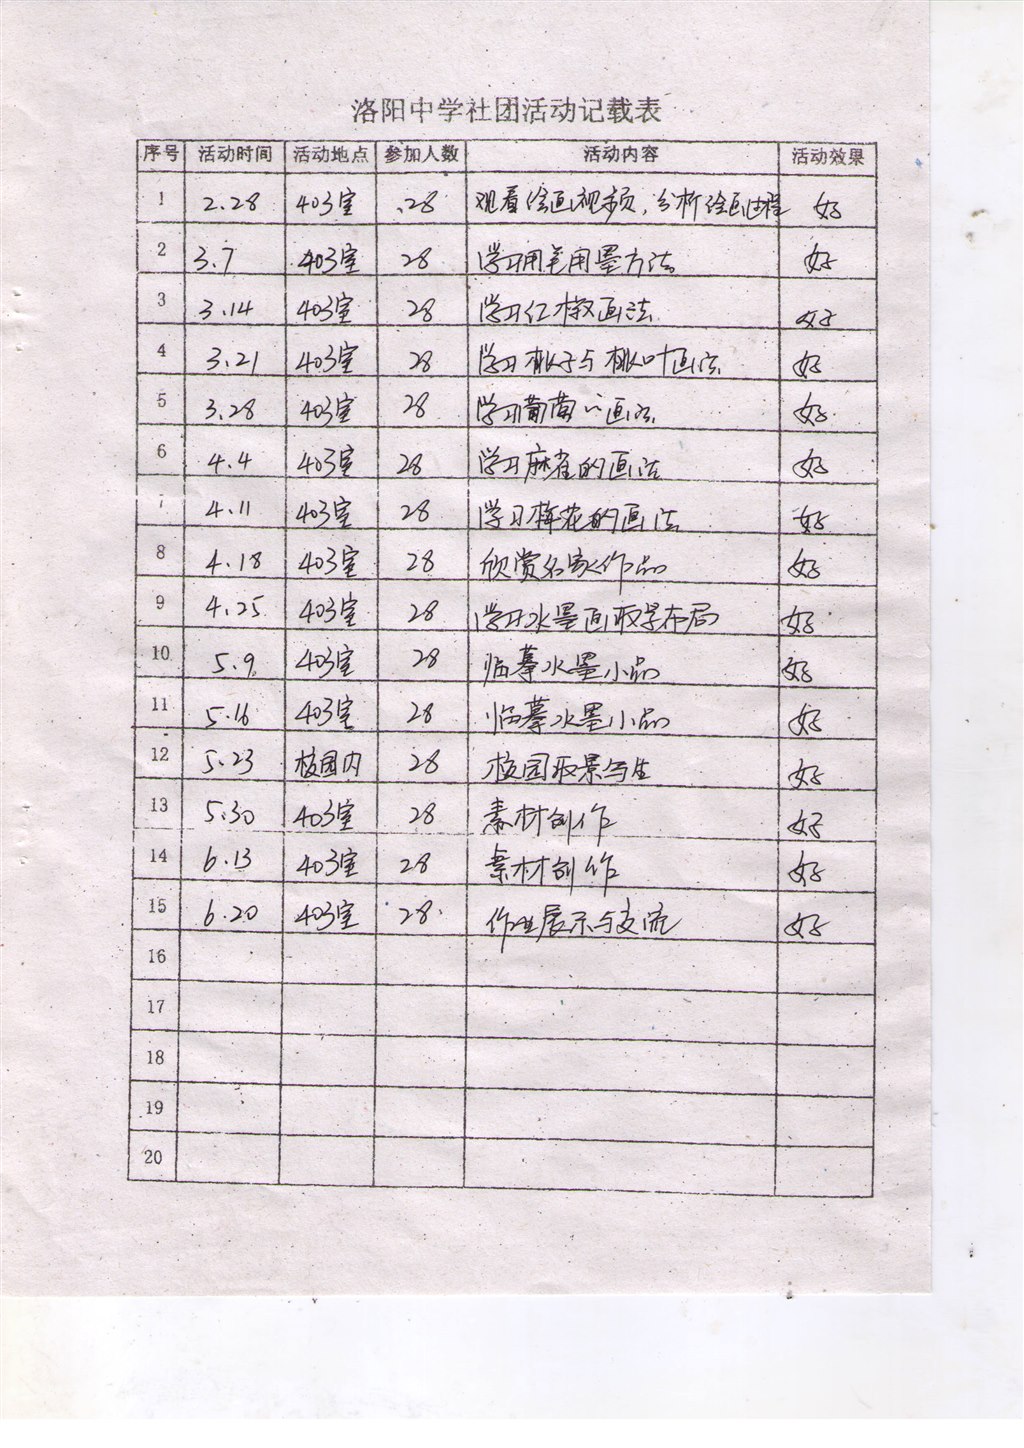 洛阳中学社团活动记载表
序号 活动时间 活动地点 参加人数 活动内容 活动效果
1 2.28 403室 28 观看绘画视频，分析绘画过程 好
2 3.7 403室 28 学习用笔用墨方法 好
3 3.14 403室 28 学习红椒画法 好
4 3.21 403室 28 学习桃子与桃叶画法 好
5 3.28 403室 28 学习葡萄画法 好
6 4.4 403室 28 学习麻雀的画法 好
7 4.11 403室 28 学习梅花的画法 好
8 4.18 403室 28 欣赏名家作品 好
9 4.25 403室 28 学习水墨画取景布局 好
10 5.9 403室 28 临摹水墨小品 好
11 5.16 403室 28 临摹水墨小品 好
12 5.23 校园内 28 校园取景写生 好
13 5.30 403室 28 素材创作 好
14 6.13 403室 28 素材创作 好
15 6.20 403室 28 作业展示与交流 好
16
17
18
19
20